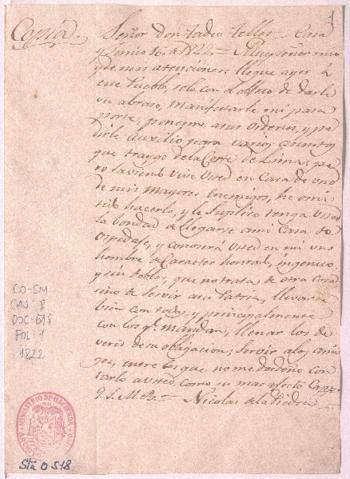 Copia.
Señor don Tadeo Tellez - Casa
y Junio 16,, de 1822 = Muy señor mio
que mas atenciones: llegue ayer á
este Pueblo, solo con el objeto de darle
un abraso, manifestarle mi pasa
porte, ponerme a sus ordenes, y pe
dirle auxilio para varios
que traygo de la Corte de Lima, pe
ro sabiendo vive Usted en Casa de uno
de mis mayores Enemigos, he omi
tido hacerlo, y le suplico tenga Usted
la bondad de llegarse a mi Casa de
ospedaje, y conoserá Usted en mi un
hombre de Caracter honrado, ingenuo,
y sin doblez, que no trata de otra cosa
sino de servir a su Patria, llevarse
bien con todos, y principalmente
con los q.e mandan, llenar los de
veres de su obligacion, servir a los ami
gos, entre los que no me desdeño con
tarlo a Usted como su mas afecto
Q. S. M. B. = Nicolas de la Piedra
1
CO-SM
CAJ 8
DOC-518
FOL 1
1822
MINISTERIO DE HACIENDA
Sta 0518